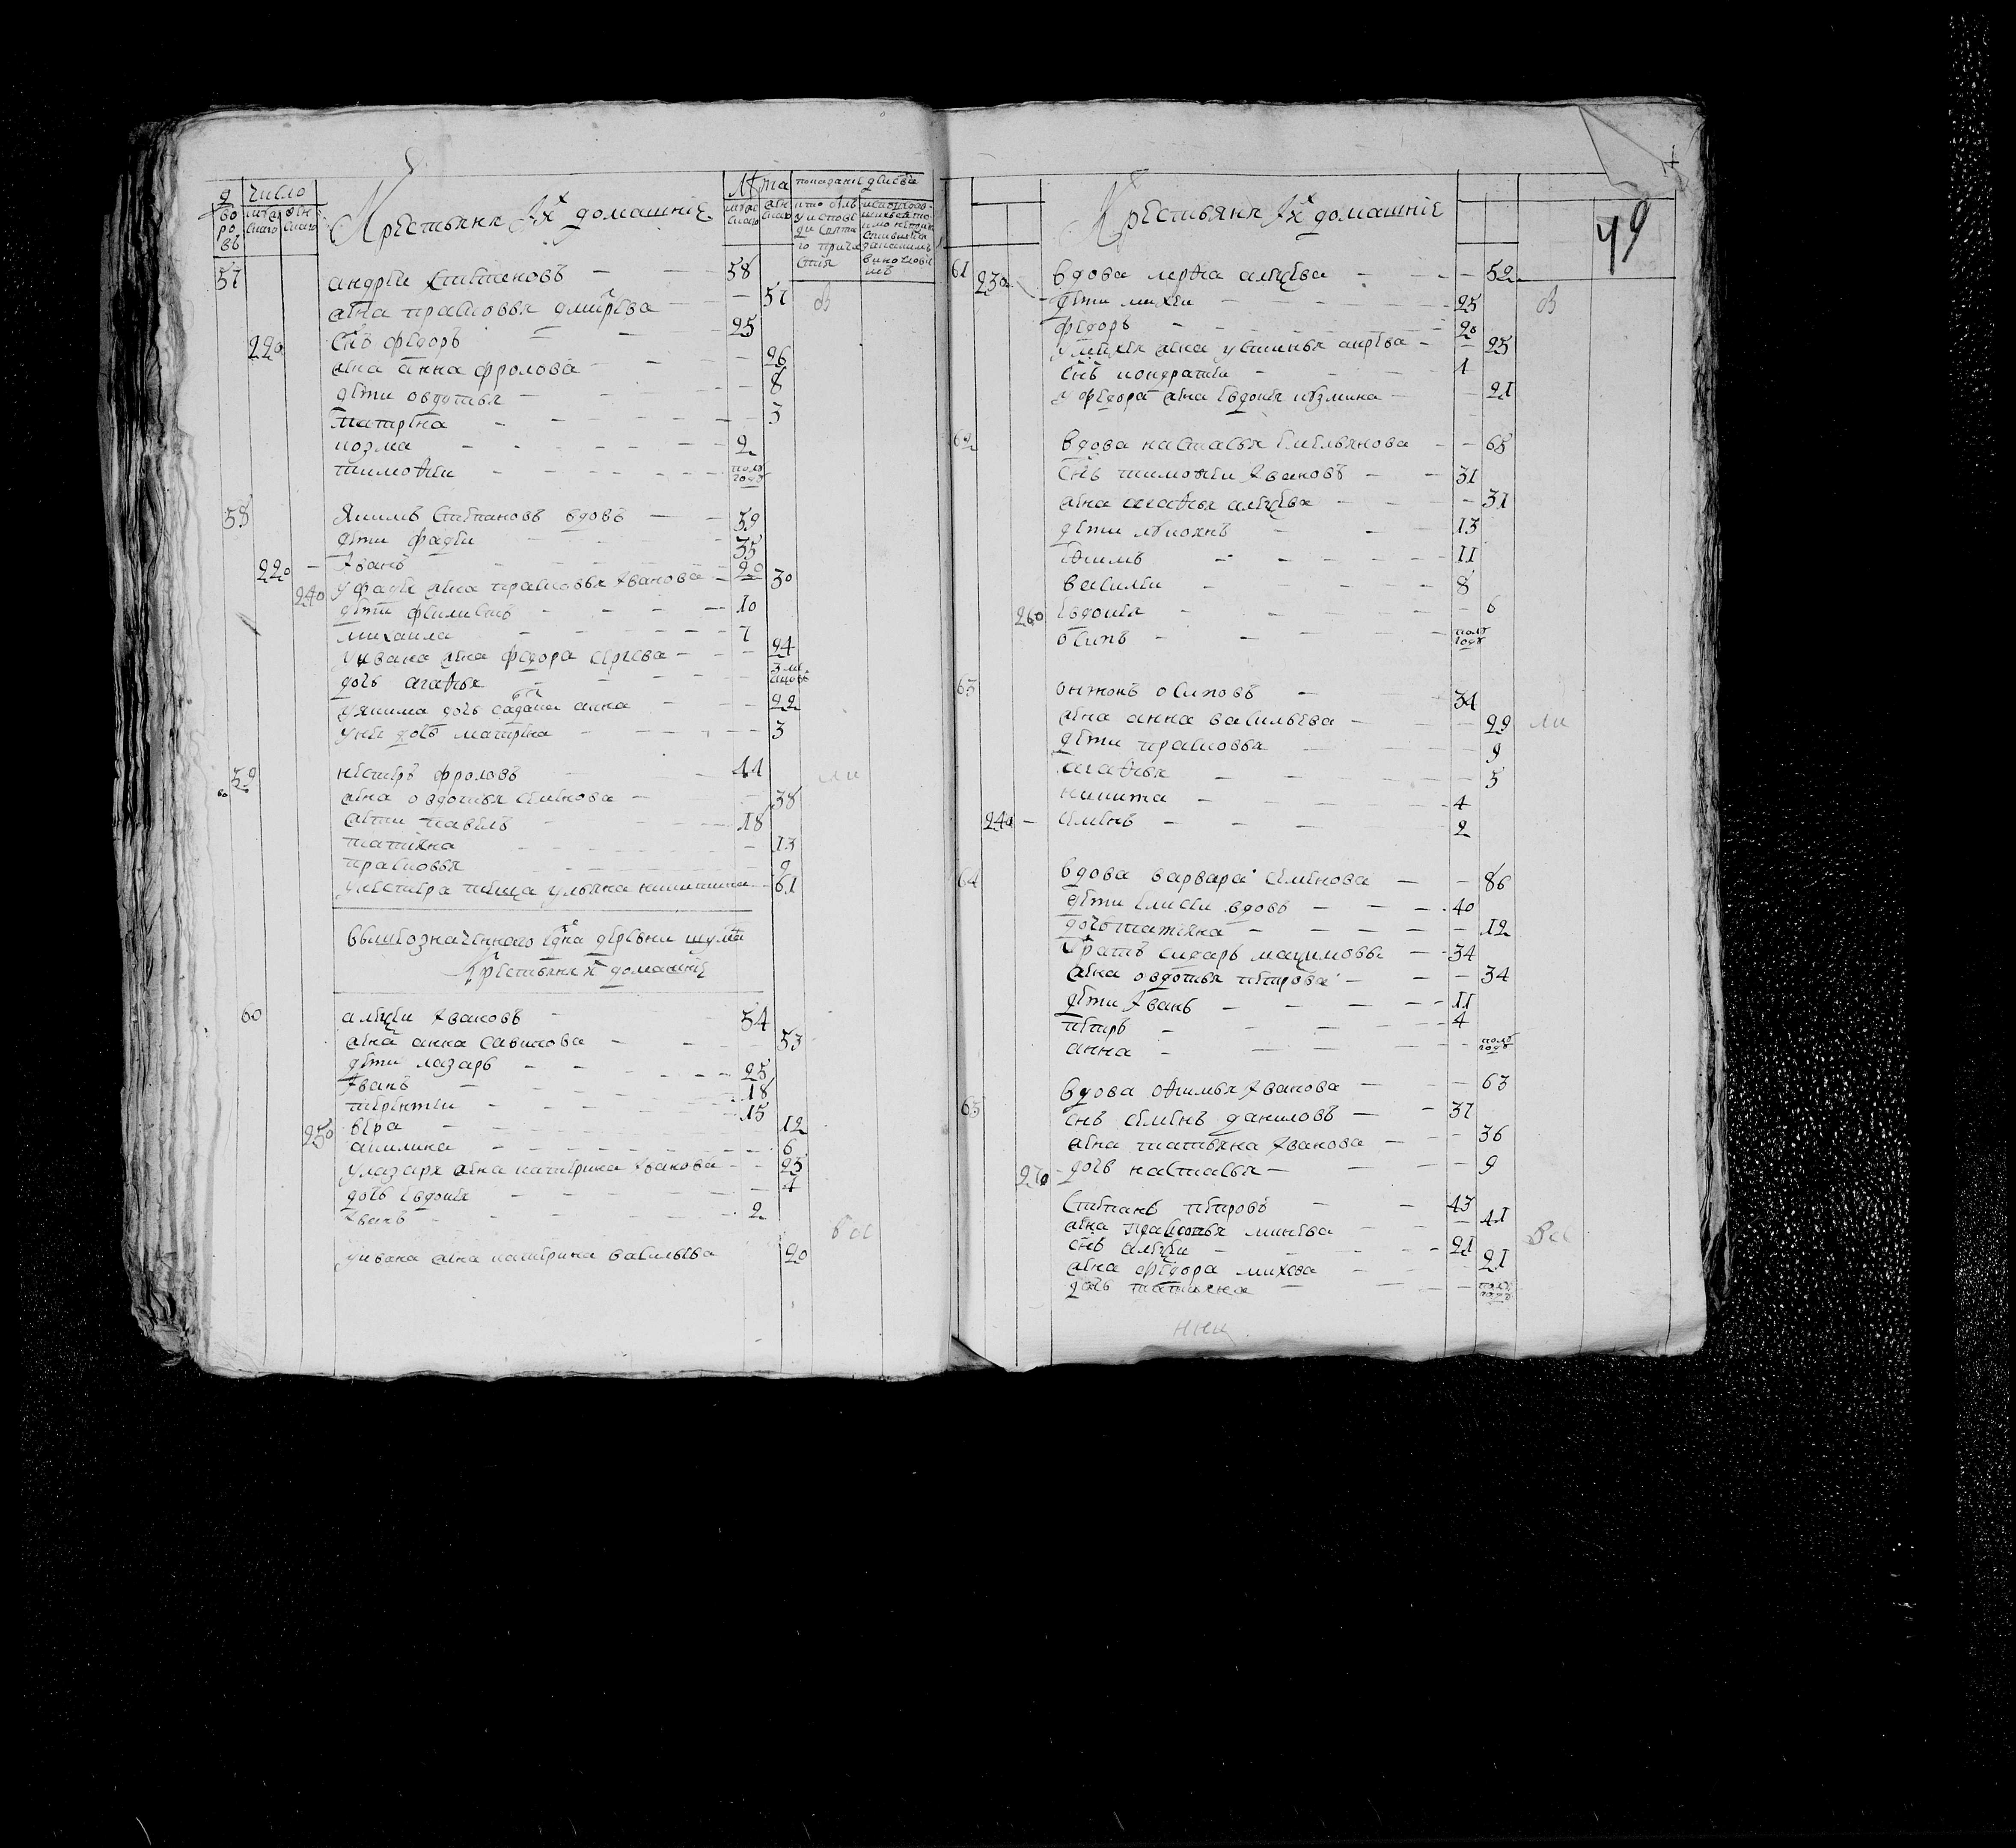 Число
Лѣта
Крестьяня Їх домашнїе
57 андрѣи степановъ 58
жена прасковья дмитрева 57
220 снъ федоръ 25
жена анна фролова 26
дети овдотья 8
матрена 5
козма 2
тимофеи полъ года
58 Якимъ степановъ вдовъ 59
дети фадеи 35
220 Їванъ 20
240 у фадея жена прасковья Їванова 30
дети филипъ 10
михаила 7
у ивана жена федора сергева 24
дочь агафья 3 месецовъ
у якима дочь анна 22
у неи дочь матрена 3
59 нестеръ фроловъ 44
жена овдотья семенова 38
дети павелъ 18
татияна 13
прасковья 9
у нестера теща ульяна никитина 61
вышеозначенного села деревни шума
Крестьяня Їх домашнїе
60 алексеи Ївановъ 54
жена анна савинова 53
дети лазарь 25
Їванъ 18
терентеи 15
250 вера 12
акилина 6
у лазаря жена катерина Їванова 25
дочь евдокея 4
Їванъ 2
у ивана жена катерина васильева 20
Крестьяня Їх домашнїе
49
61 230 вдова марфа алексева 52
дети михеи 25
федоръ 20
у михея жена устинья 25
снъ кондратеи 1
у федора жена евдокея козмина 21
62 вдова настасья емельянова 68
снъ тимофеи Ївановъ 31
жена агафья алексева 31
дети лукиянъ 13
ефимъ 11
василеи 8
260 евдокея 6
осипъ полъ года
63 антонъ осиповъ 34
жена анна васильева 29
дети прасковья 9
агафья 5
никита 4
240 семенъ 2
64 вдова варвара семенова 86
дети елисеи вдовъ 40
дочь татияна 12
братъ сидаръ максимовъ 34
жена овдотья петрова 34
дети Їванъ 11
петръ 4
анна полъ года
65 вдова офимья Їванова 63
снъ семенъ даниловъ 37
жена татьяна Їванова 36
270 дочь настасья 9
степанъ петровъ 43
жена прасковья минева 41
снъ алексеи 21
жена федора михева 21
дочь татияна полъ года